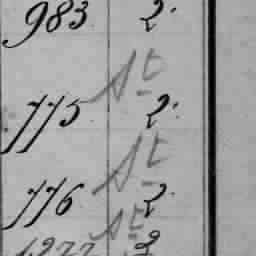 983 2.
St
775 2.
St
776 2.
St
1277 2